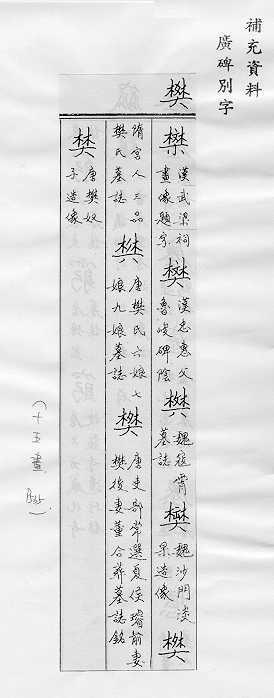 補充資料
廣碑別字
樊
樊 漢武梁祠畫像題字 樊 漢忠惠父魯峻碑陰 樊 魏寇霄墓誌 樊 魏沙門凌 景造像 樊
隋宮人三品樊氏墓誌 樊 唐樊氏六娘七娘九娘墓誌 樊 唐吏部常選夏侯璿前妻樊後妻董合葬墓誌銘
樊 唐樊奴子造像
(十五畫